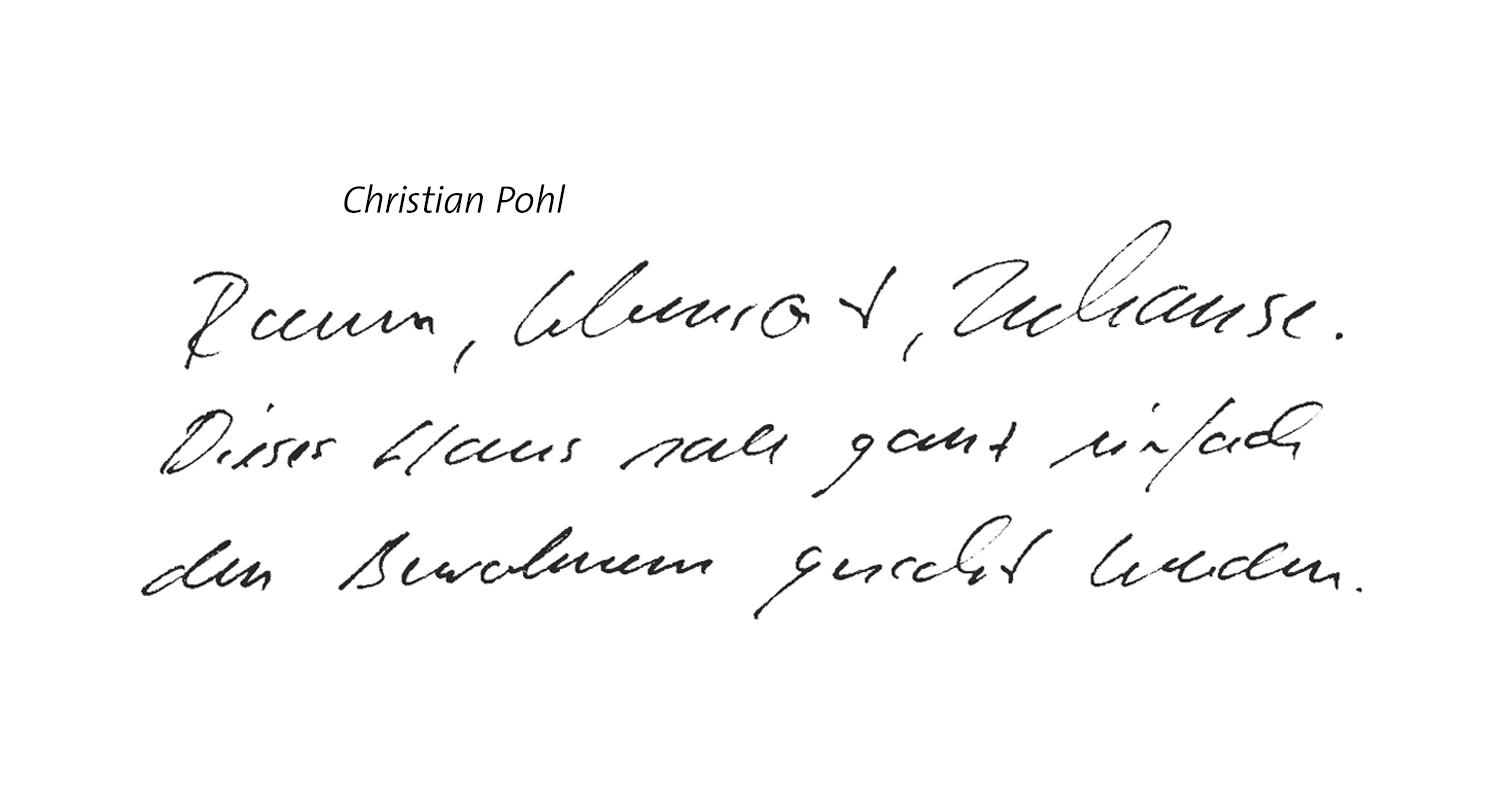 Christian Pohl
Raum, Wohnort, Zuhause.
Dieses Haus soll ganz einfach
den Bewohnern gerecht werden.